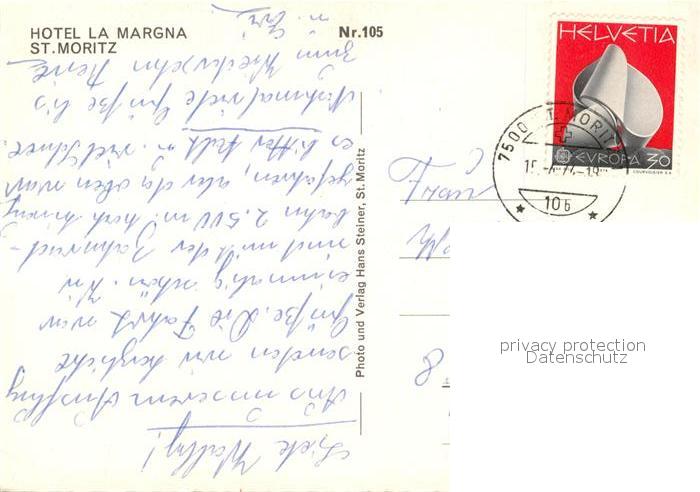 HOTEL LA MARGNA
ST. MORITZ
Nr. 105
HELVETIA
EUROPA 30
COURVOISIER S.A.
7500 ST. MORITZ
106
Photo und Verlag Hans Steiner, St. Moritz
privacy protection
Datenschutz
Liebe Wally!
Aus unserem Ausflug
senden wir herzliche
Grüße. Die Fahrt war
einmalig schön. Wir
sind mit der Zahnrad-
bahn 2.500 m hoch hinauf
gefahren, aber da oben war
es bitter kalt u. viel Schnee.
Nochmal viele Grüße bis
zum Wiedersehn
u.
Frau